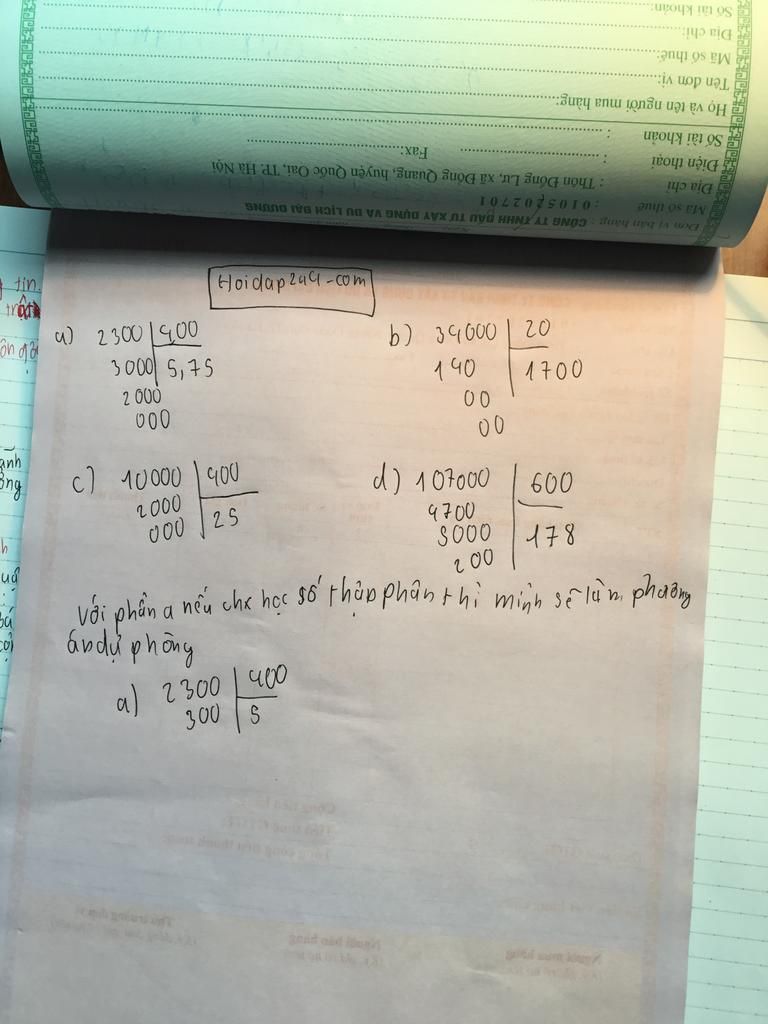 Số tài khoản:
Địa chỉ:
Mã số thuế:
Tên đơn vị:
Họ và tên người mua hàng:
Số tài khoản :
Điện thoại : Fax:
Địa chỉ : Thôn Đồng Lư, xã Đồng Quang, huyện Quốc Oai, TP. Hà Nội
Mã số thuế : 0105202701
Đơn vị bán hàng : CÔNG TY TNHH ĐẦU TƯ XÂY DỰNG VÀ DU LỊCH ĐẠI DƯƠNG
Hoidap247.com
a) 2300 400
3000 5,75
2000
000
b) 34000 20
140 1700
00
00
c) 10000 400
2000 25
000
d) 107000 600
4700 178
5000
200
Với phần a nếu chx học số thập phân thì mình sẽ làm phương
án dự phòng
a) 2300 400
300 5